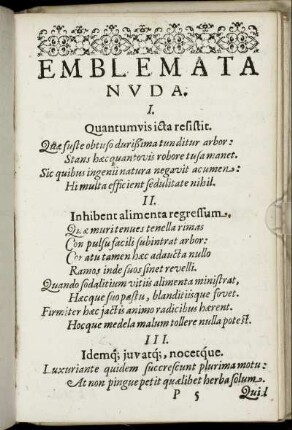 EMBLEMATA
NVDA.
I.
Quantumvis icta resistit.
Quæ fuste obtuso durißima tunditur arbor:
Stans hæc quantovis robore tusa manet.
Sic quibus ingenii natura negavit acumen:
Hi multa efficient sedulitate nihil.
II.
Inhibent alimenta regressum.
Quæ muri tenues tenella rimas
Con pulsu facili subintrat arbor:
tamen hæc adaucta nullo
Ramos inde suos sinet revelli.
Quando sodalitium vitiis alimenta ministrat,
Hæcque suo pastu, blanditiisque fovet.
Firmiter hæc jactis animo radicibus hærent.
Hocque medela malum tollere nulla potest.
III.
Idemq; juvatq;, nocetque.
Luxuriante quidem succrescunt plurima motu:
At non pingue petit quælibet herba solum
P 5